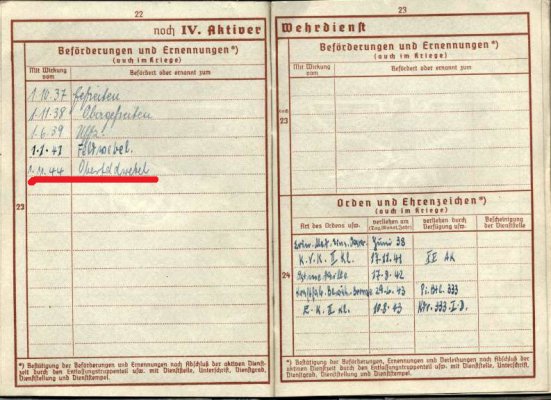 22
noch IV. Aktiver
Beförderungen und Ernennungen*)
(auch im Kriege)
Mit Wirkung vom
Befördert oder ernannt zum
1.10.37 Gefreiten
1.11.38 Obergefreiten
1.6.39 Uffz.
Feldwebel.
44 Oberfeldwebel
23
*) Bestätigung der Beförderungen und Ernennungen nach Abschluß der aktiven Dienst-
zeit durch den Entlassungstruppenteil usw. mit Dienststelle, Unterschrift, Dienstgrad,
Dienststellung und Dienststempel.
23
Wehrdienst
Beförderungen und Ernennungen*)
(auch im Kriege)
Mit Wirkung vom
Befördert oder ernannt zum
noch
23
Orden und Ehrenzeichen*)
(auch im Kriege)
Art des Ordens usw.
verliehen am (Tag, Monat, Jahr)
verliehen durch Verfügung usw.
Bescheinigung der Dienststelle
Juni 38
K.V.K. II Kl. 17.12.41 AK
24
17.8.42
29.6.43 Pi. Btl. 333
E.K. II Kl. 10.8.43 333. I.D.
*) Bestätigung der Beförderungen, Ernennungen und Verleihungen nach Abschluß der
aktiven Dienstzeit durch den Entlassungstruppenteil usw. mit Dienststelle, Unterschrift,
Dienstgrad, Dienststellung und Dienststempel.